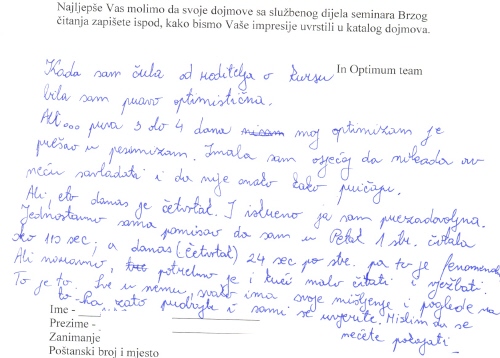 Najljepše Vas molimo da svoje dojmove sa službenog dijela seminara Brzog
čitanja zapišete ispod, kako bismo Vaše impresije uvrstili u katalog dojmova.
In Optimum team
Kada sam čula od roditelja o kursu
bila sam pravo optimistična.
Ali... prva 3 do 4 dana moj optimizam je
prešao u pesimizam. Imala sam osjećaj da nikada ov
neću savladati i da nije onako kako pričaju.
Ali, eto danas je četvrtak. I iskreno ja sam prezadovoljna.
Jednostavno sama pomisao da sam u Petak 1 str. čitala
oko 110 sec; a danas (četvrtak) 24 sec po str. pa to je fenomenalno
Ali naravno, potrebno je i kući malo čitati i vježbati.
To je to. Sve u svemu, svako ima svoje mišljenje i poglede na
to ka zato probajte i sami se uvjerite. Mislim da se
nećete pokajati.
Ime -
Prezime -
Zanimanje
Poštanski broj i mjesto